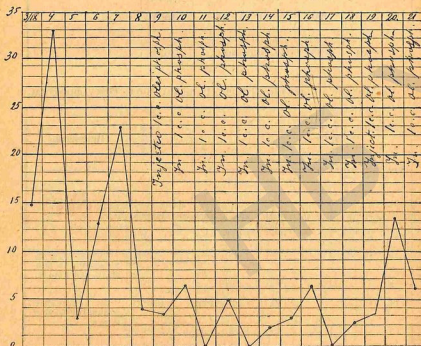 3/IX 4 5 6 7 8 9 10 11 12 13 14 15 16 17 18 19 20 21
35
30
25
20
15
10
5
0
Injectio 1 c.c. olei phosph.
In. 1 c.c. ol. phosph.
In. 1 c.c. ol. phosph.
In. 1 c.c. ol. phosph.
In. 1 c.c. ol. phosph.
In. 1 c.c. ol. phosph.
In. 1 c.c. ol. phosph.
In. 1 c.c. ol. phosph.
In. 1 c.c. ol. phosph.
In. 1 c.c. ol. phosph.
Inject. 1 c.c. ol. phosph.
In. 1 c.c. ol. phosph.
In. 1 c.c. ol. phosph.